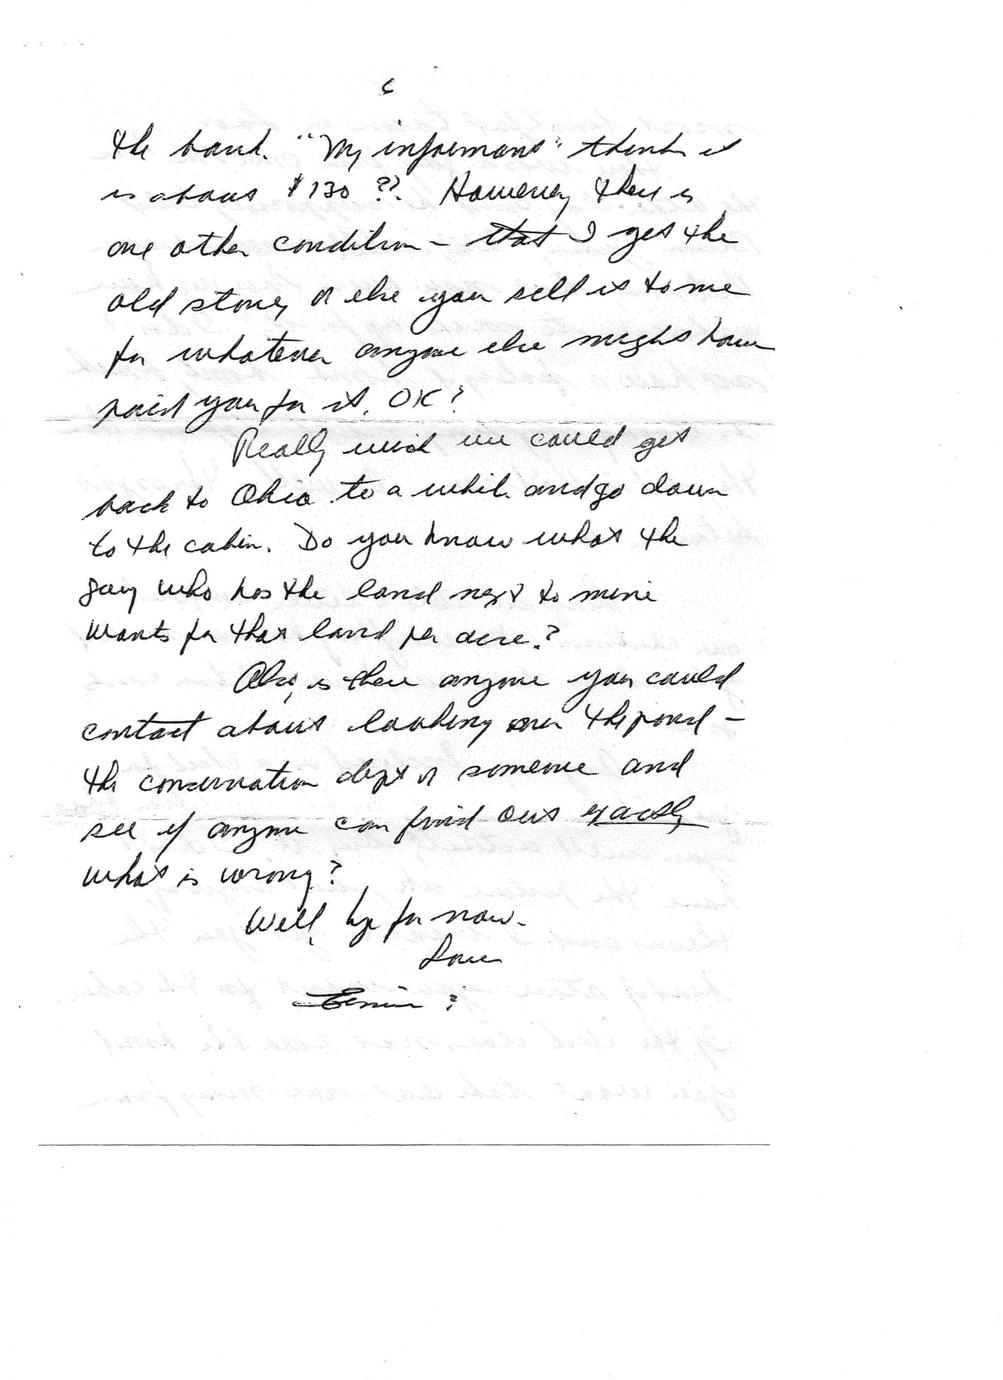 6
the bank. "My informant" thinks it
is about $130 ??. However, there is
one other condition - that I get the
old stove, or else you sell it to me
for whatever anyone else might have
paid you for it, OK?
Really wish we could get
back to Ohio to a while and go down
to the cabin. Do you know what the
guy who has the land next to mine
wants for that land per acre.?
Also, is there anyone you could
contact about looking over the pond -
the conservation dept or someone and
see if anyone can find out exactly
what is wrong?
Well, bye for now.
Love
Ernie